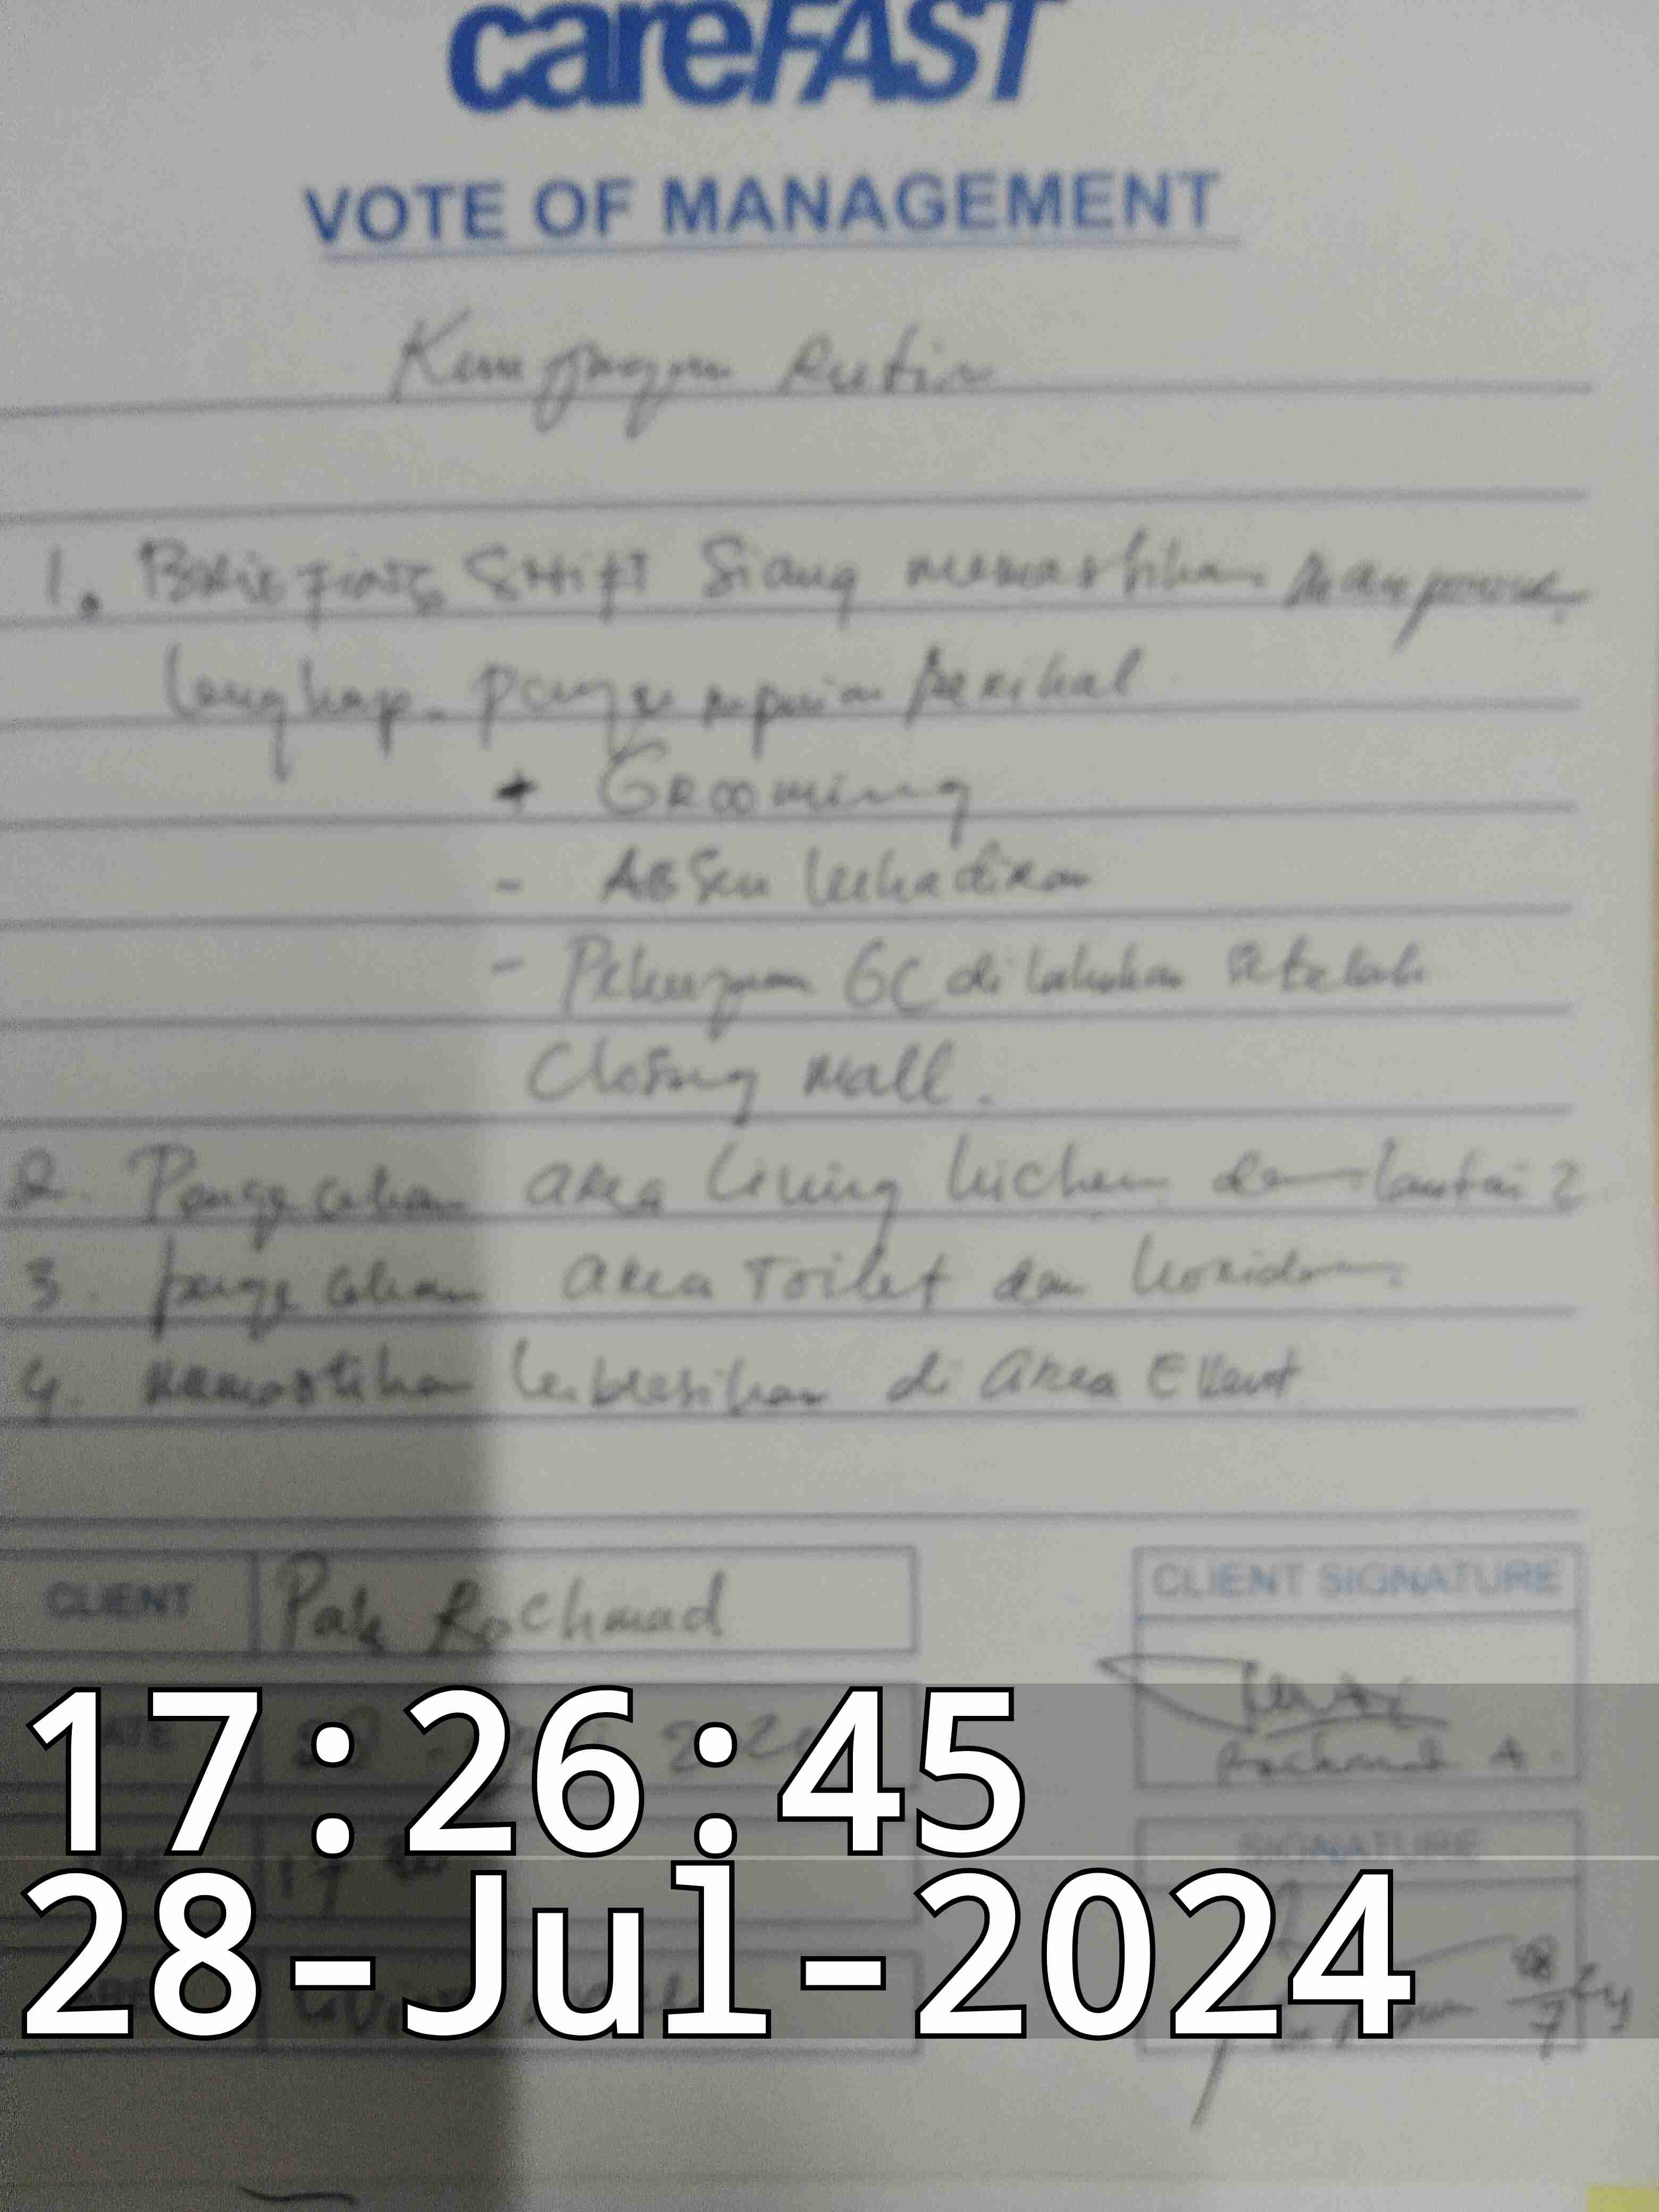 careFAST
VOTE OF MANAGEMENT
Kunjungan Rutin
1. Briefing SHift Siang memastikan Manpower
lengkap. perihal
+ Grooming
- Absen kehadiran
- Pekerjaan GC di lakukan setelah
Closing Mall.
2. Pengecekan area Living kichen dan lantai 2
3. pengecekan area Toilet dan koridor.
4. Memastikan kebersihan di area Event
CLIENT
Pak Rochmad
CLIENT SIGNATURE
Rochmad A.
DATE
28 2024
TIME
17
SIGNATURE
AREA
28/7 24
17:26:45
28-Jul-2024